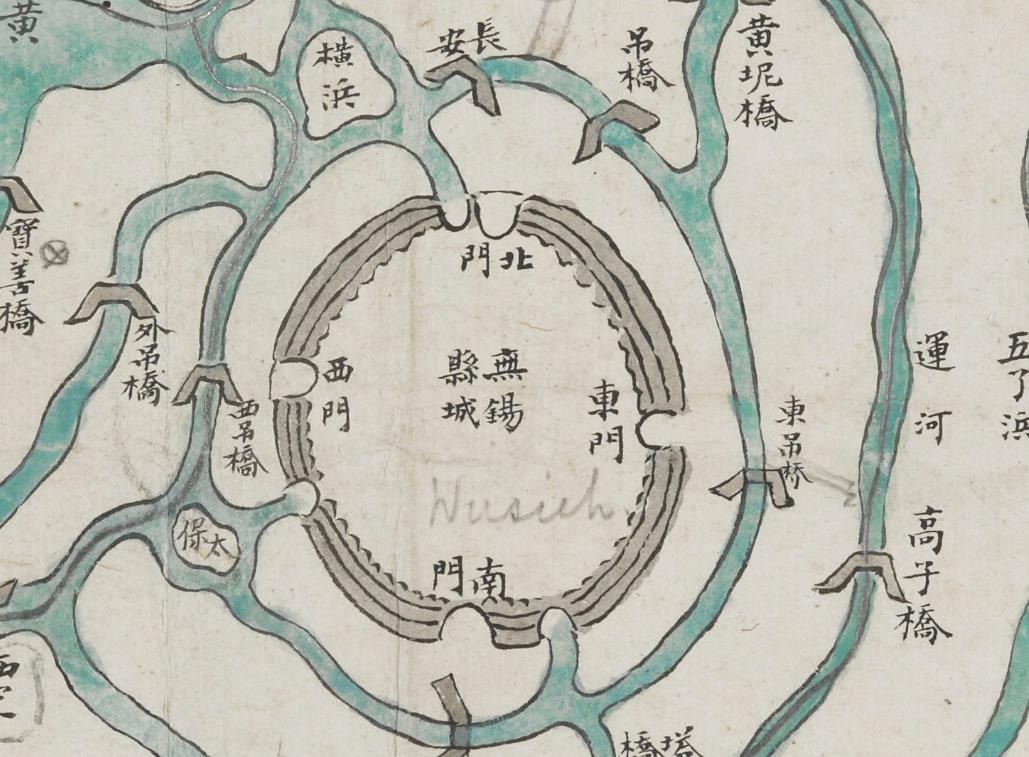 黄
橫浜
長安
吊橋
黄坭橋
寶善橋
外吊橋
西吊橋
北門
西門
無錫
縣城
東門
東吊桥
運河
五了浜
Wusieh.
保太
南門
高子橋
塔橋